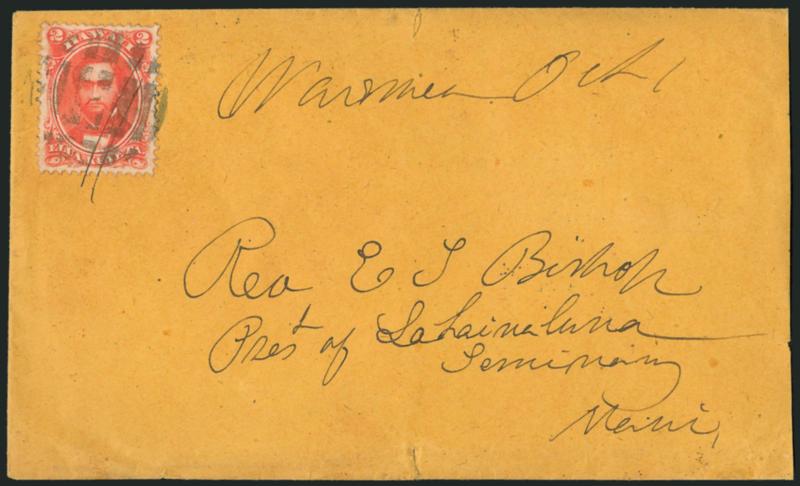 2 2
Waimea Oct 1
Rev E S Bishop
Prest of Lahainaluna
Seminary
Maui,
2 2